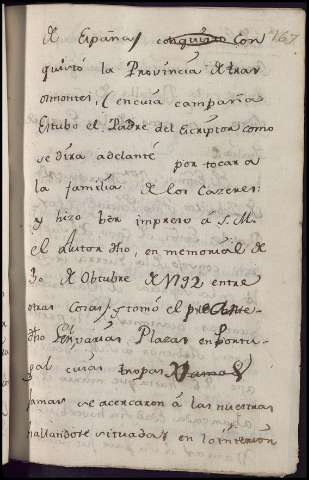 167
de España, conquisto Con
quistó la Provincia de tras
osmontes, (encuia campaña
Estubo el Padre del Escriptor como
se dira adelante por tocar a
la familia de los Cazeres:
y hizo ber impreso á S. M.
el Autor dho, en memorial de
30 de Obtubre de 1792 entre
otras Cosas) y tomó el
dho varias Plazas en Portu-
gal cuias tropas
jamas se acercaron á las nuestras
hallandose situadas en lo interior